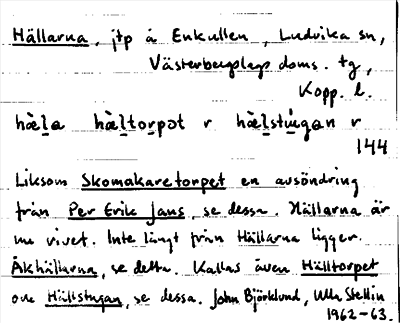 Hällarna, jtp å Enkullen, Ludvika sn,
Västerbergslags doms. tg,
Kopp. l.
hæ̀ḷa hæ̀ḷtorpət r hæ̀ḷstúgan r
144
Liksom Skomakaretorpet en avsöndring
från Per Erik Jans, se dessa. Hällarna är
nu rivet. Inte långt från Hällarna ligger
Åkhällarna, se detta. Kallas även Hälltorpet
och Hällstugan, se dessa. John Björklund, Ulla Stellin
1962-63.